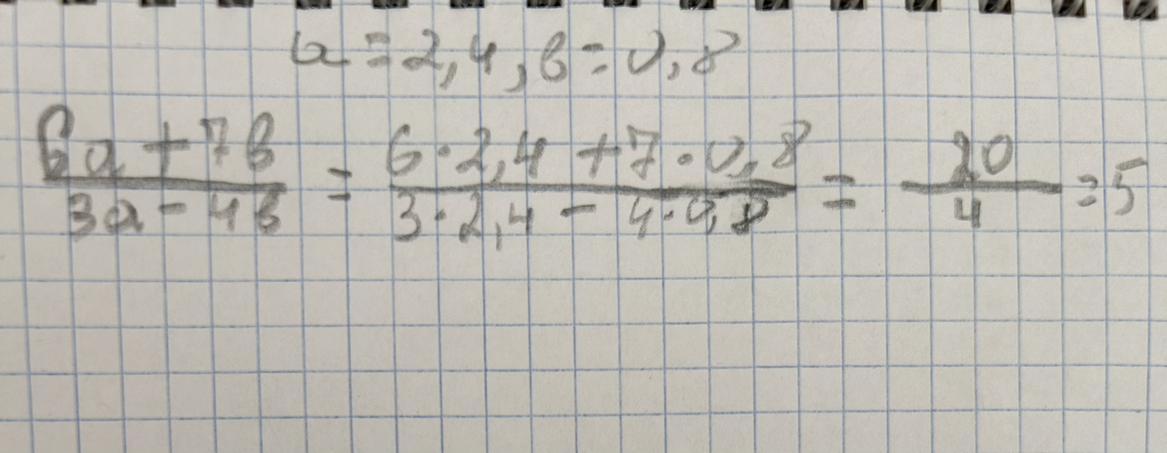 a = 2,4, b = 0,8
6a + 7b / 3a - 4b = 6·2,4 + 7·0,8 / 3·2,4 - 4·0,8 = 20 / 4 = 5